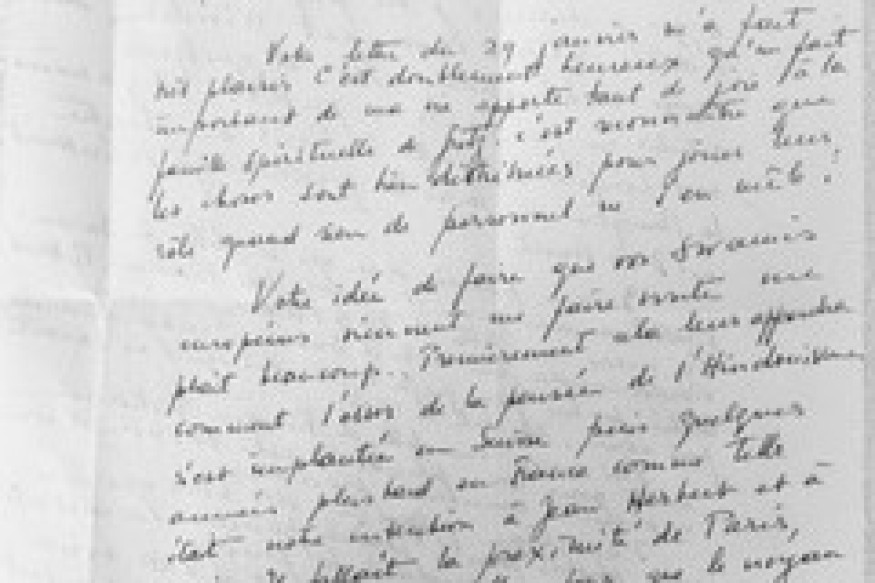 Votre lettre du 29 janvier m'a fait
très plaisir. C'est doublement heureux qu'un fait
important de ma vie apporte tant de joie à la
famille spirituelle de c'est reconnaître que
les choses sont bien déterminées pour jouer leur
rôle quand rien de personnel ne s'en mêle !
Votre idée de faire que vos Swamis
européens viennent me faire visite me
plaît beaucoup. Premièrement cela leur apprendra
comment l'essor de la pensée de l'Hindouisme
s'est implantée en Suisse puis quelques
années plus tard en France comme telle
était notre intention à Jean Herbert et à
Il fallait la proximité de Paris,
que le noyau